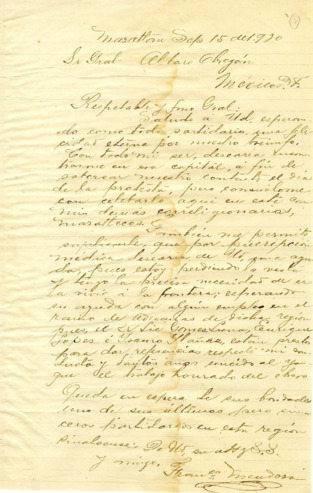 Mazatlán Sep. 15 de 1920
Sr Gral Alvaro Obregón
México D.F.
Respetable y fino Gral:
Saludo á Ud, esperan-
do como todo partidario, una feli-
cidad eterna por nuestro triunfo.
Con todo mi ser, desearia, encon-
trarme en esa Capital á fin de
saborear nuestro contento el dia
de la protesta, pero consuélome
con celebrarlo aquí en esta con
mis demas correligionarios,
mazatlecos.
Tambien me permito
suplicarle, que por prescripción
médica desearia de Ud, una ayu-
da, pues estoy perdiendo la vista
y tengo la precisa necesidad de ir
á vivir á la frontera; esperando
su ayuda con algún empleo en el
ramo de Aduanas de dicha región
pues, el Sr Lic
Lopes é Isauro Ibañez, están
para dar, referencias respecto mi con-
ducta y
que el trabajo honrado del
Queda en espera de sus bondades
uno de sus últimos pero sin-
ceros partidarios en esta región
Sinaloense De Ud, su att y S.S.
y amigo.
Mendoza